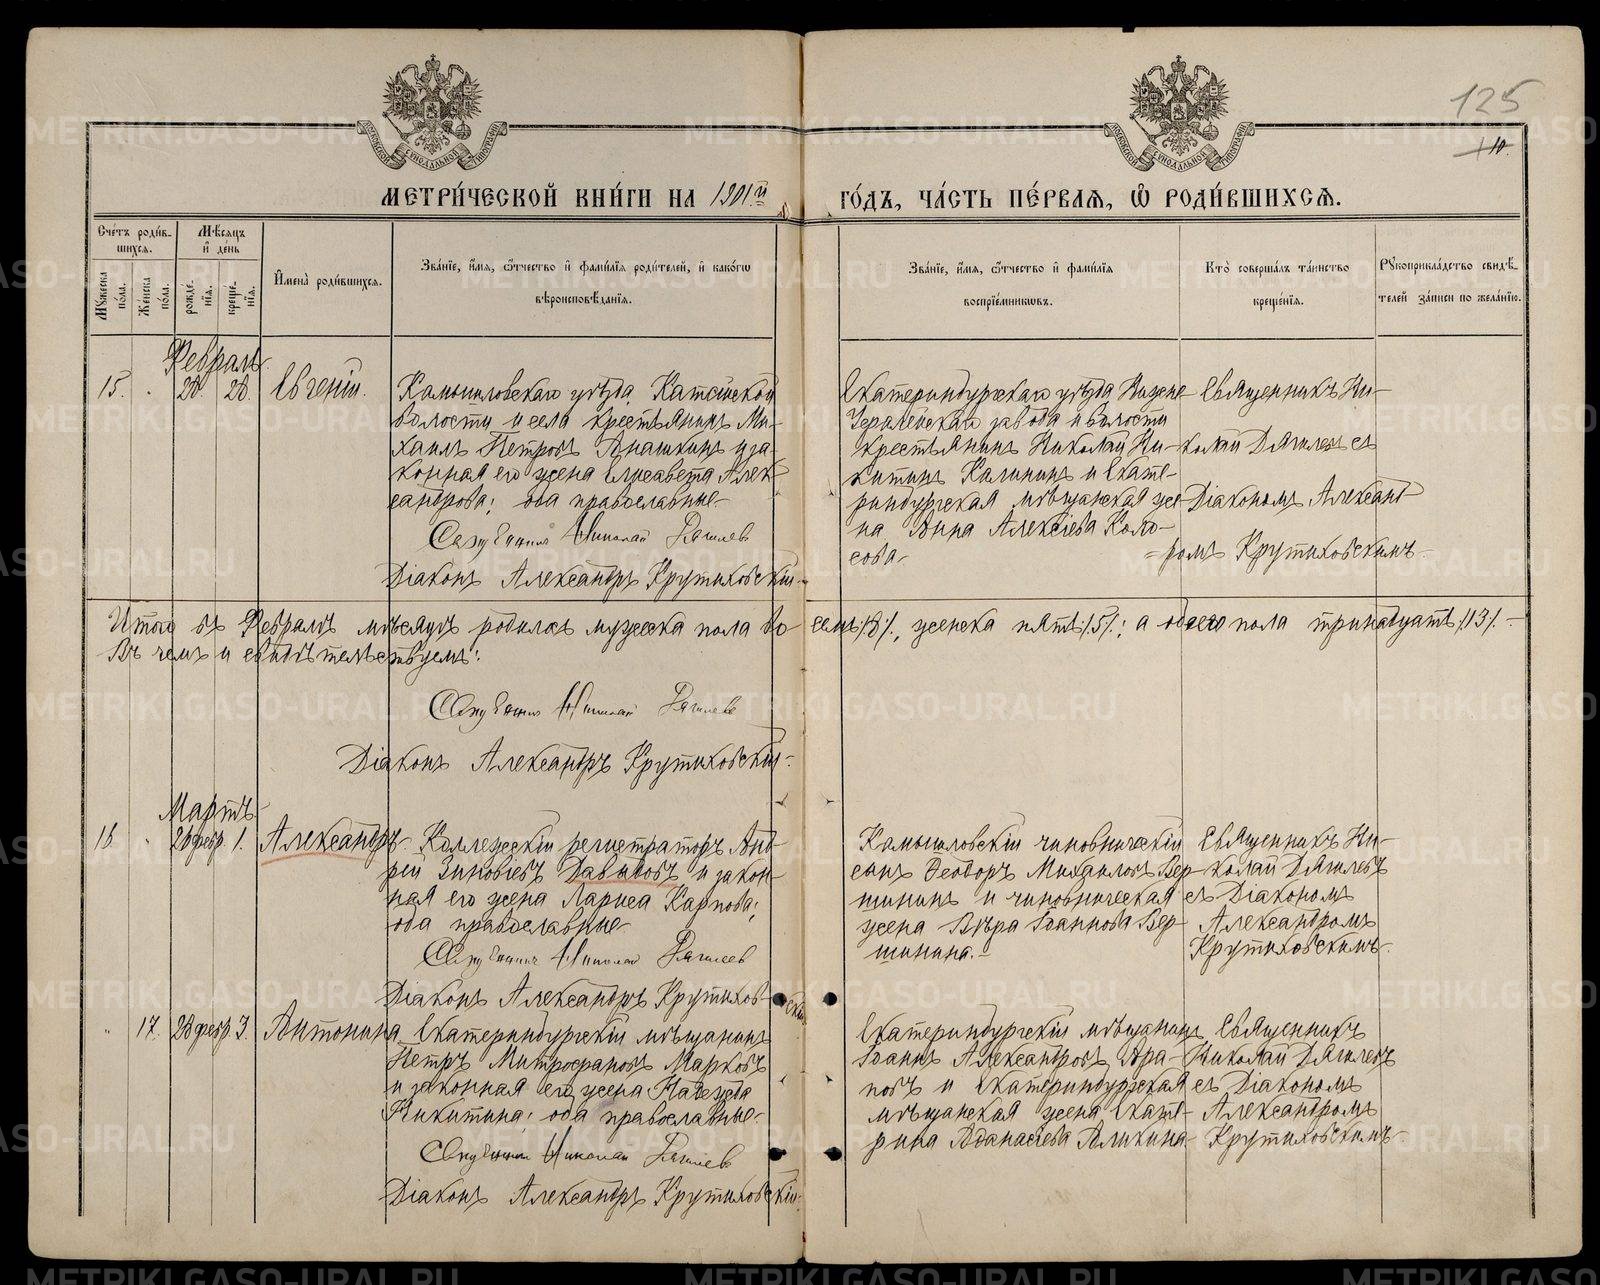 125
10.
МЕТРИ́ЧЕСКОЙ КНИ́ГИ НА 1901й ГО́ДЪ, ЧА́СТЬ ПЕ́РВАѦ, Ѡ҆ РОДИ́ВШИХСѦ.
Сче́тъ роди́в-
шихсѧ.
Мꙋ́жеска по́ла.
Же́нска по́ла.
Мѣ́сѧцъ
и҆ де́нь
рожде́нїѧ.
креще́нїѧ.
И҆мена̀ роди́вшихсѧ.
Зва́нїе, и҆́мѧ, ѻ҆́тчество и҆ фами́лїѧ роди́телей, и҆ како́гѡ
вѣроисповѣ́данїѧ.
Зва́нїе, и҆́мѧ, ѻ҆́тчество и҆ фами́лїѧ
воспрїе́мникѡвъ.
Кто̀ соверша́лъ та́инство
креще́нїѧ.
Рꙋкоприкла́дство свидѣ́-
телей за́писи по жела́нїю.
Февраль
15. 28. 28. Евгеній.
Камышловскаго уѣзда, Катайской
волости и села крестьянинъ Ми-
хаилъ Петровъ и за-
конная его жена Елисавета Алек-
сандрова; оба православные-
Священникъ Николай Дягилевъ
Діаконъ Александръ Крутиховскій-
Екатеринбургскаго уѣзда Нижне-
завода и волости
крестьянинъ Николай Ни-
китинъ Калининъ и Екате-
ринбургская мѣщанская же-
на Анна Алексіева Коло-
сова-
Священникъ Ни-
колай Дягилевъ съ
Діакономъ Александ-
=ромъ Крутиховскимъ-
Итого въ Февралѣ мѣсяцѣ родилось мужеска пола во- семь/8/, женска пять/5/; а обоего пола тринадцать/13/.-
Въ чемъ и свидѣтельствуемъ:
Священникъ Николай Дягилевъ
Діаконъ Александръ Крутиховскій-
Мартъ
16. 26 февр. 1. Александръ-
Коллежскій регистраторъ Анд-
рей Зиновіевъ Давыдовъ и закон-
ная его жена Лариса Карпова;
оба православные-
Священникъ Николай Дягилевъ
Діаконъ Александръ Крутихов-скій
Камышловскій чиновническій
сынъ Ѳеодоръ Михаиловъ Вер-
шининъ и чиновническая
жена Вѣра Іоаннова Вер-
шинина.-
Священникъ Ни-
колай Дягилевъ
съ Діакономъ
Александромъ
Крутиховскимъ-
17. 28 февр. 3. Антонина
Екатеринбургскій мѣщанинъ
Петръ Митрофановъ Марковъ
и законная его жена Надежда
Никитина; оба православные-
Священникъ Николай Дягилевъ
Діаконъ Александръ Крутиховскій-
Екатеринбургскій мѣщанинъ
Іоаннъ Александровъ Ара-
повъ и Екатеринбургская
мѣщанская жена Екате-
рина Аѳанасіева Аликина-
Священникъ
Николай Дягилевъ
съ Діакономъ
Александромъ
Крутиховскимъ-
METRIKI.GASO-URAL.RU